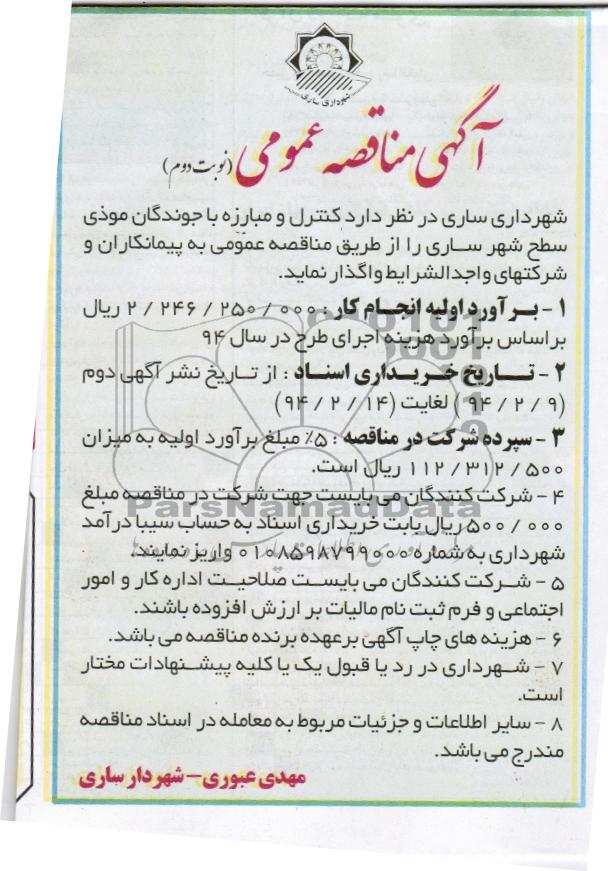 شهرداری ساری
آگهی مناقصه عمومی (نوبت دوم)
شهرداری ساری در نظر دارد کنترل و مبارزه با جوندگان موذی
سطح شهر ساری را از طریق مناقصه عمومی به پیمانکاران و
شرکتهای واجدالشرایط واگذار نماید.
۱- برآورد اولیه انجام کار : ۰۰۰ / ۲۵۰ / ۲۴۶ / ۲ ریال
براساس برآورد هزینه اجرای طرح در سال ۹۴
۲- تاریخ خریداری اسناد : از تاریخ نشر آگهی دوم
(۹ / ۲ / ۹۴) لغایت (۱۴ / ۲ / ۹۴)
۳- سپرده شرکت در مناقصه : ۵٪ مبلغ برآورد اولیه به میزان
۵۰۰ / ۳۱۲ / ۱۱۲ ریال است.
۴- شرکت کنندگان می بایست جهت شرکت در مناقصه مبلغ
ParsNamadData
۰۰۰ / ۵۰۰ ریال بابت خریداری اسناد به حساب سیبا درآمد
شهرداری به شماره ۰۱۰۸۵۹۸۷۹۹۰۰۰ واریز نمایند.
۵- شرکت کنندگان می بایست صلاحیت اداره کار و امور
اجتماعی و فرم ثبت نام مالیات بر ارزش افزوده باشند.
۶- هزینه های چاپ آگهی برعهده برنده مناقصه می باشد.
۷- شهرداری در رد یا قبول یک یا کلیه پیشنهادات مختار
است.
۸- سایر اطلاعات و جزئیات مربوط به معامله در اسناد مناقصه
مندرج می باشد.
مهدی عبوری- شهردار ساری